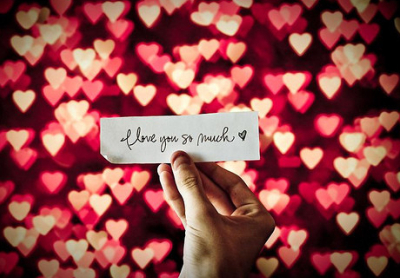 I love you so much ♥